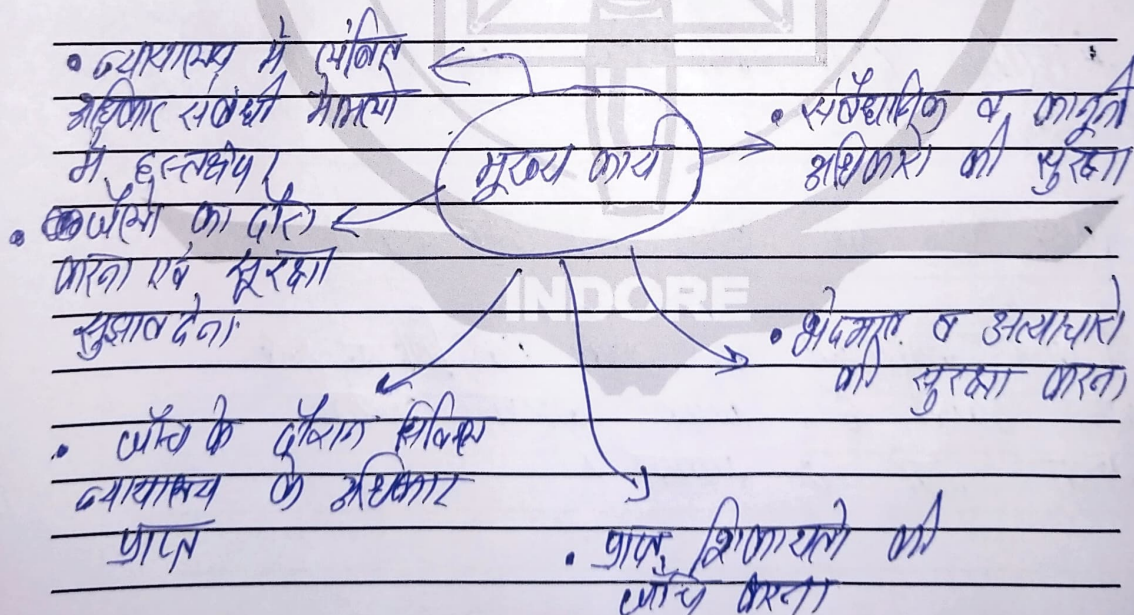 • न्यायालय में लंबित
अधिकार संबंधी मामलो
में हस्तक्षेप।
• जेलो का दौरा
करना एवं सूरक्षा
सुझाव देना।
मूख्य कार्य
• संवैधानिक व कानूनी
अधिकारो की सुरक्षा
• भेदभाव व अत्याचारो
की सुरक्षा करना
• जाँच के दौरान सिविल
न्यायालय के अधिकार
प्राप्त
• प्राप्त शिकायतो की
जाँच करना
INDORE